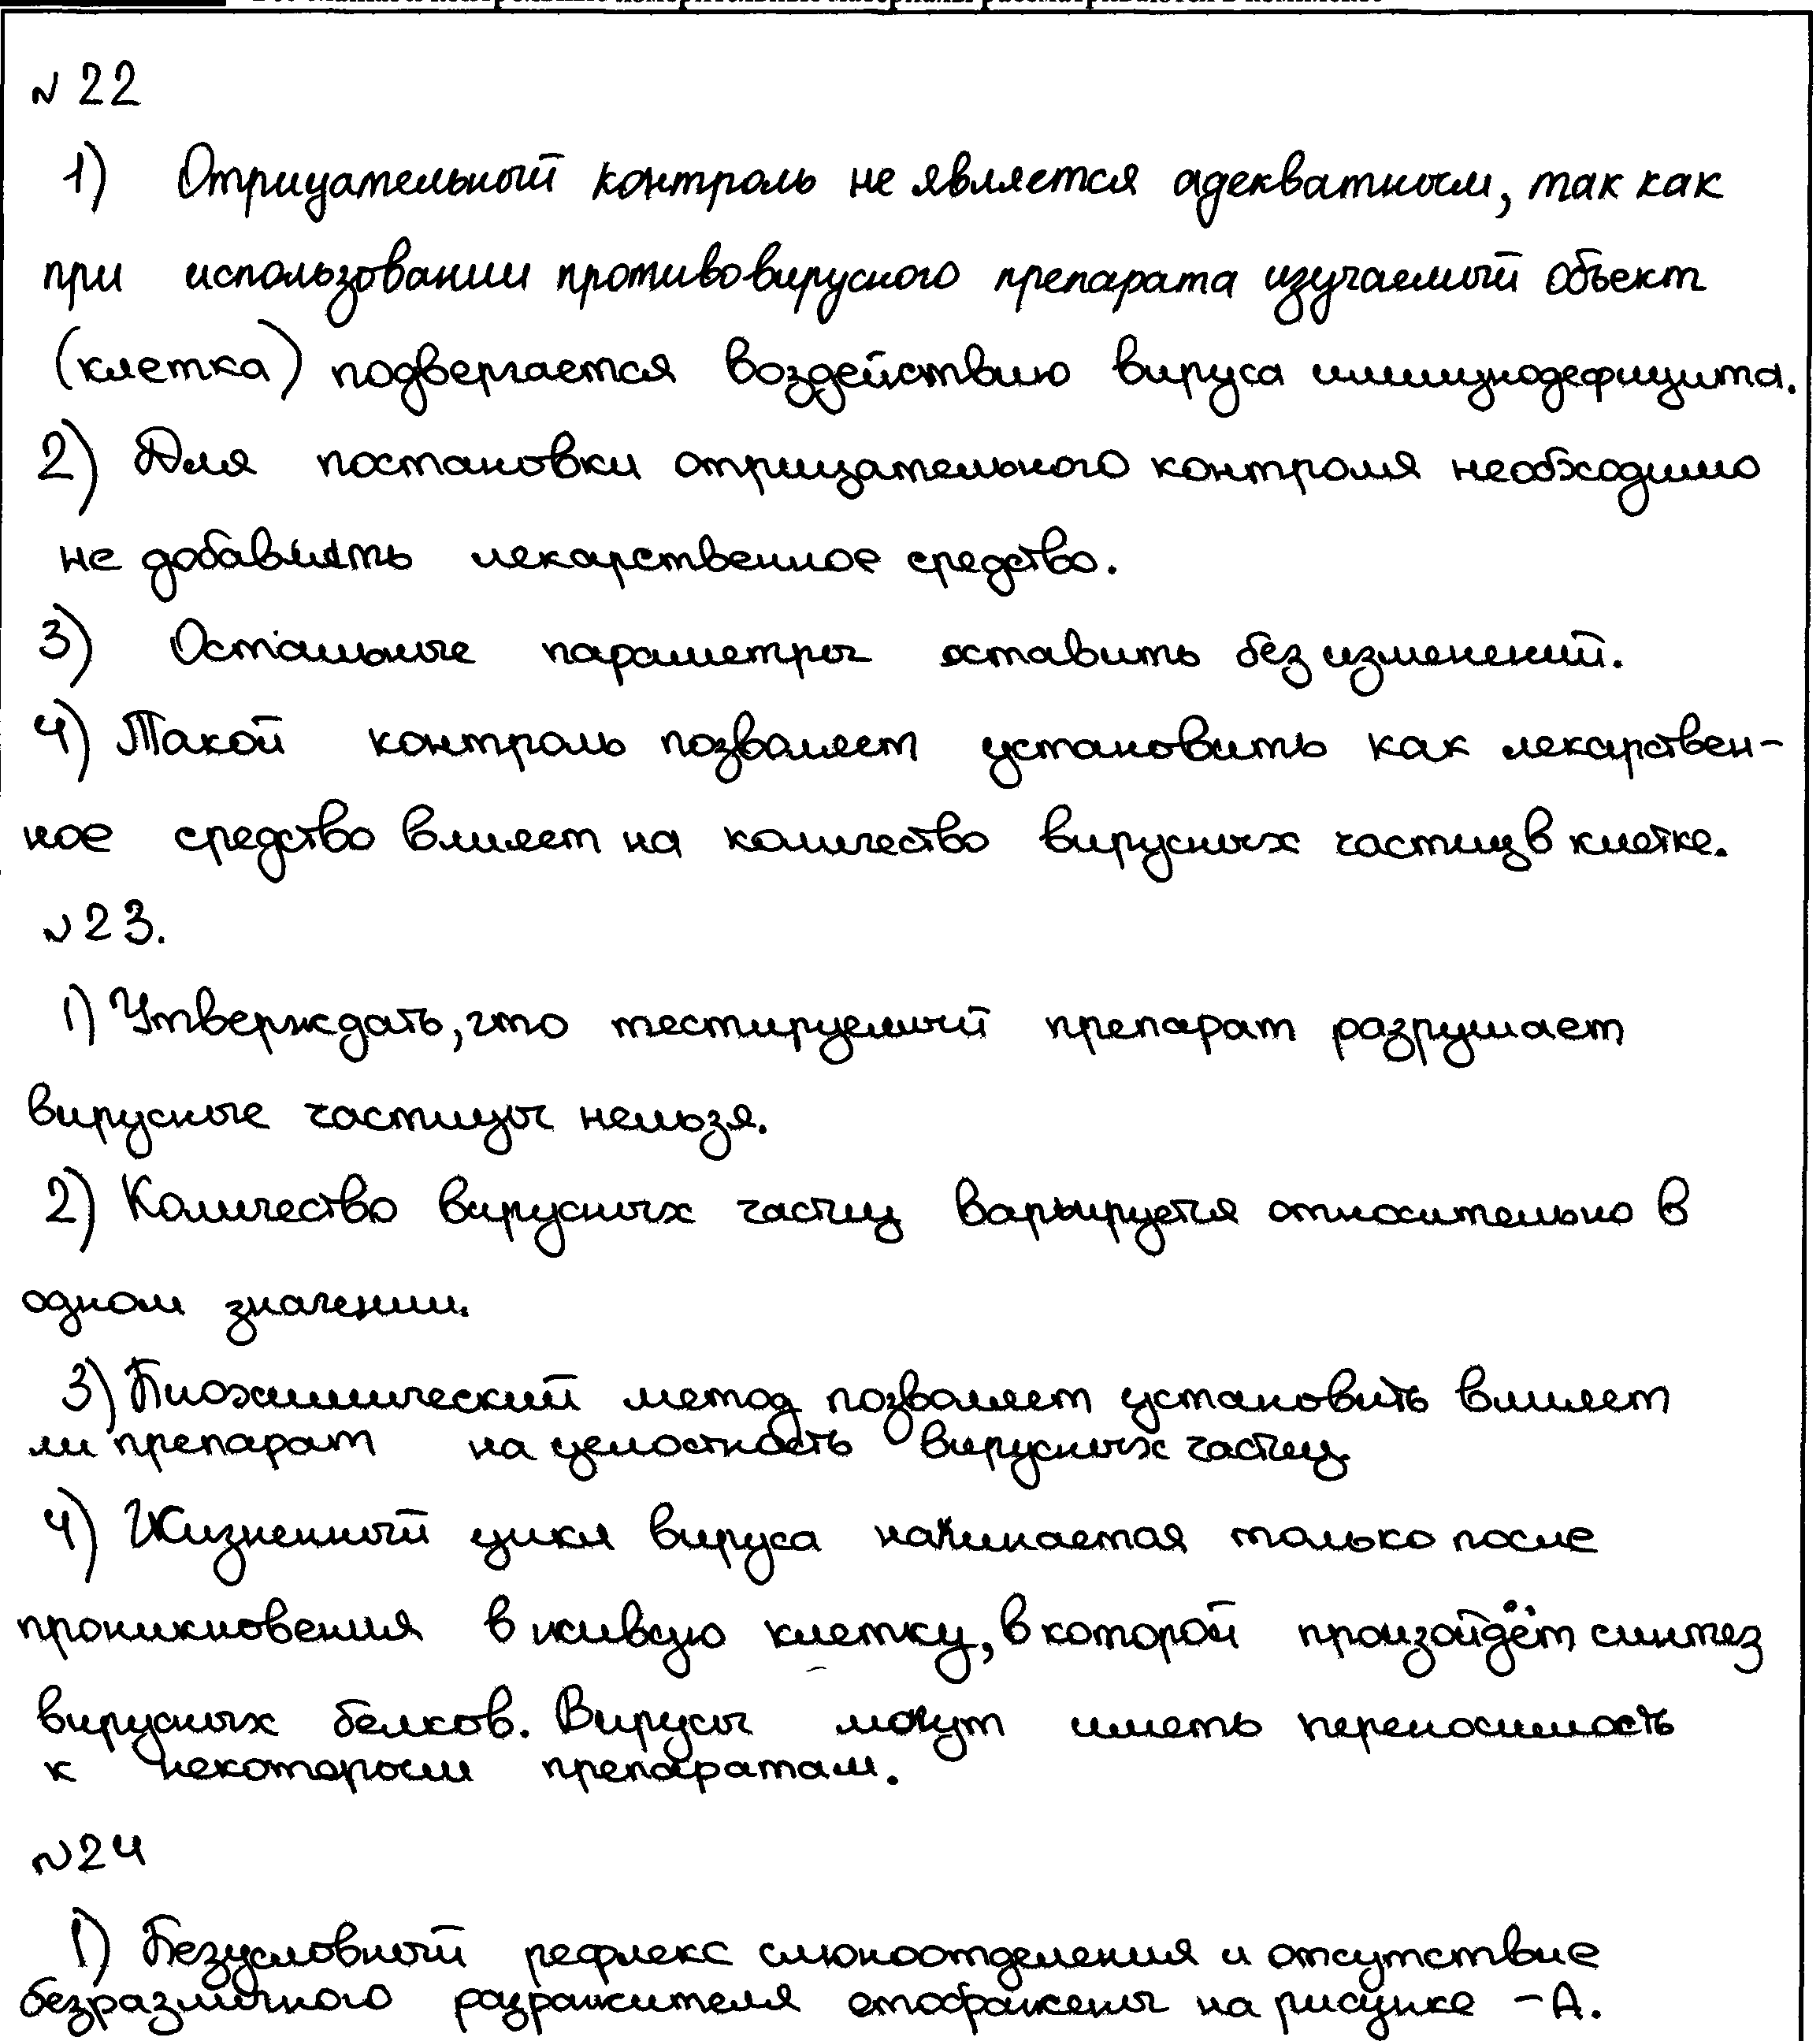 № 22
1) Отрицательный контроль не является адекватным, так как
при использовании противовирусного препарата изучаемый объект
(клетка) подвергается воздействию вируса иммунодефицита.
2) Для постановки отрицательного контроля необходимо
не добавлять лекарственное средство.
3) Остальные параметры оставить без изменений.
4) Такой контроль позволяет установить как лекарствен-
ное средство влияет на количество вирусных частиц в клетке.
№ 23.
1) Утверждать, что тестируемый препарат разрушает
вирусные частицы нельзя.
2) Количество вирусных частиц варьируется относительно в
одном значении.
3) Биохимический метод позволяет установить влияет
ли препарат на целостность вирусных частиц
4) Жизненный цикл вируса начинается только после
проникновения в живую клетку, в которой произойдёт синтез
вирусных белков. Вирусы могут иметь переносимость
к некоторым препаратам.
№ 24
1) Безусловный рефлекс слюноотделения и отсутствие
безразличного раздражителя отображены на рисунке – А.